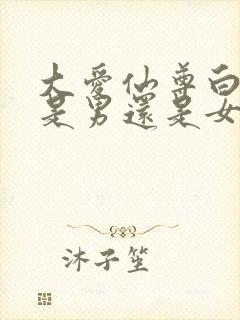 大愛仙尊白
是男還是女
沐子笙